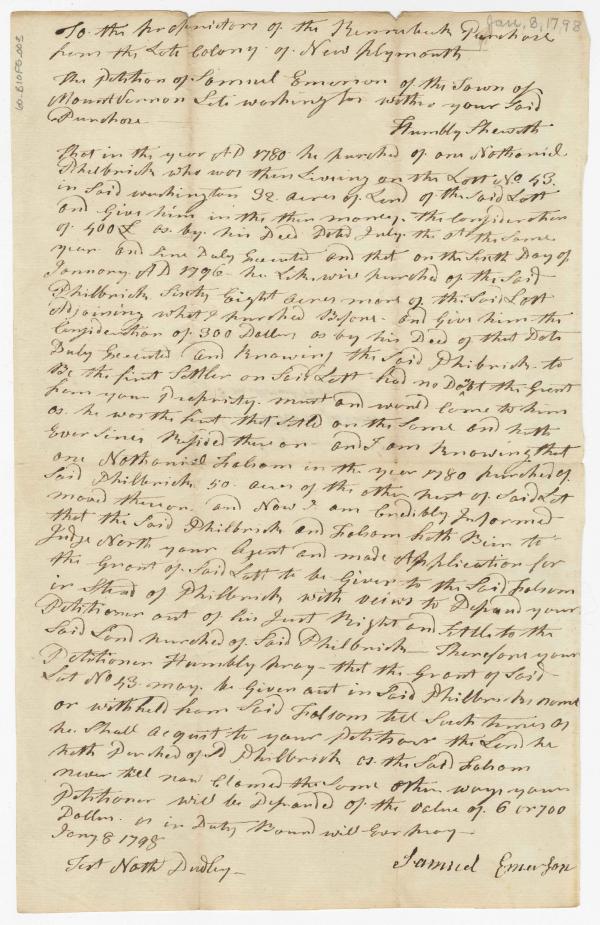 Jan. 8, 1798
To the proprictors of the Kennebeck Purchase
from the Late Colony of New plymouth
The Petition of Samuel Emerson of the Town of
Mount Vernon Late washington within your Said
Purchase
Humbly Sheweth
that in the year AD 1780 he purched of one Nathaniel
Philbrick who was then Liveing on the Lott No. 43.
in Said washington 32 acres of Land of the Said Lott
and Give him in the then money the Consideration
of 400£ as by his Deed Dated July the of the Same
year and Sine Duly Executed and that on the Sixth Day of
January AD 1796 he Likewise purched of the Said
Philbrick Sixty Eight acres more of the Said Lott
Adjoining what I purched Before and Give him the
Consideration of 300 Dollars as by his Deed of that Date
Duly Executed and Knowing the Said Philbrick to
Be the first Settler on Said Lott had no Dobt the Grant
from your Propriety must and would Come to him
as he was the first that Setld on the Same and hath
Ever Sines Resided there on and I am Knowing that
one Nathaniel Folsom in the year 1780 purched of
Said Philbrick 50 acres of the other part of Said Lot
moved thereon and Now I am Credibly Informed
that the Said Philbrick and Folsom hath Bein to
Judge North your Agent and made Application for
the Grant of Said Lott to be Given to the Said Folsom
in Stead of Philbrick with veiws to Defraud your
Petitioner out of his Just Right and tittle to the
Said Land purched of Said Philbrick Therefore your
Petitioner Humbly pray that the Grant of Said
Lot No 43 may be Given out in Said Philbricks name
or withheld from Said Folsom till Such times as
he Shall acquit to your Petitioner the Land he
hath Purched of Sd Philbrick as the Said Folsom
never till now Clamed the Same other ways your
Petitioner will be Defrauded of the value of 6 or 700
Dollars as in Duty Bound will Ever pray
Jany 8 1798
Test Nath Dudley
Samuel Emerson